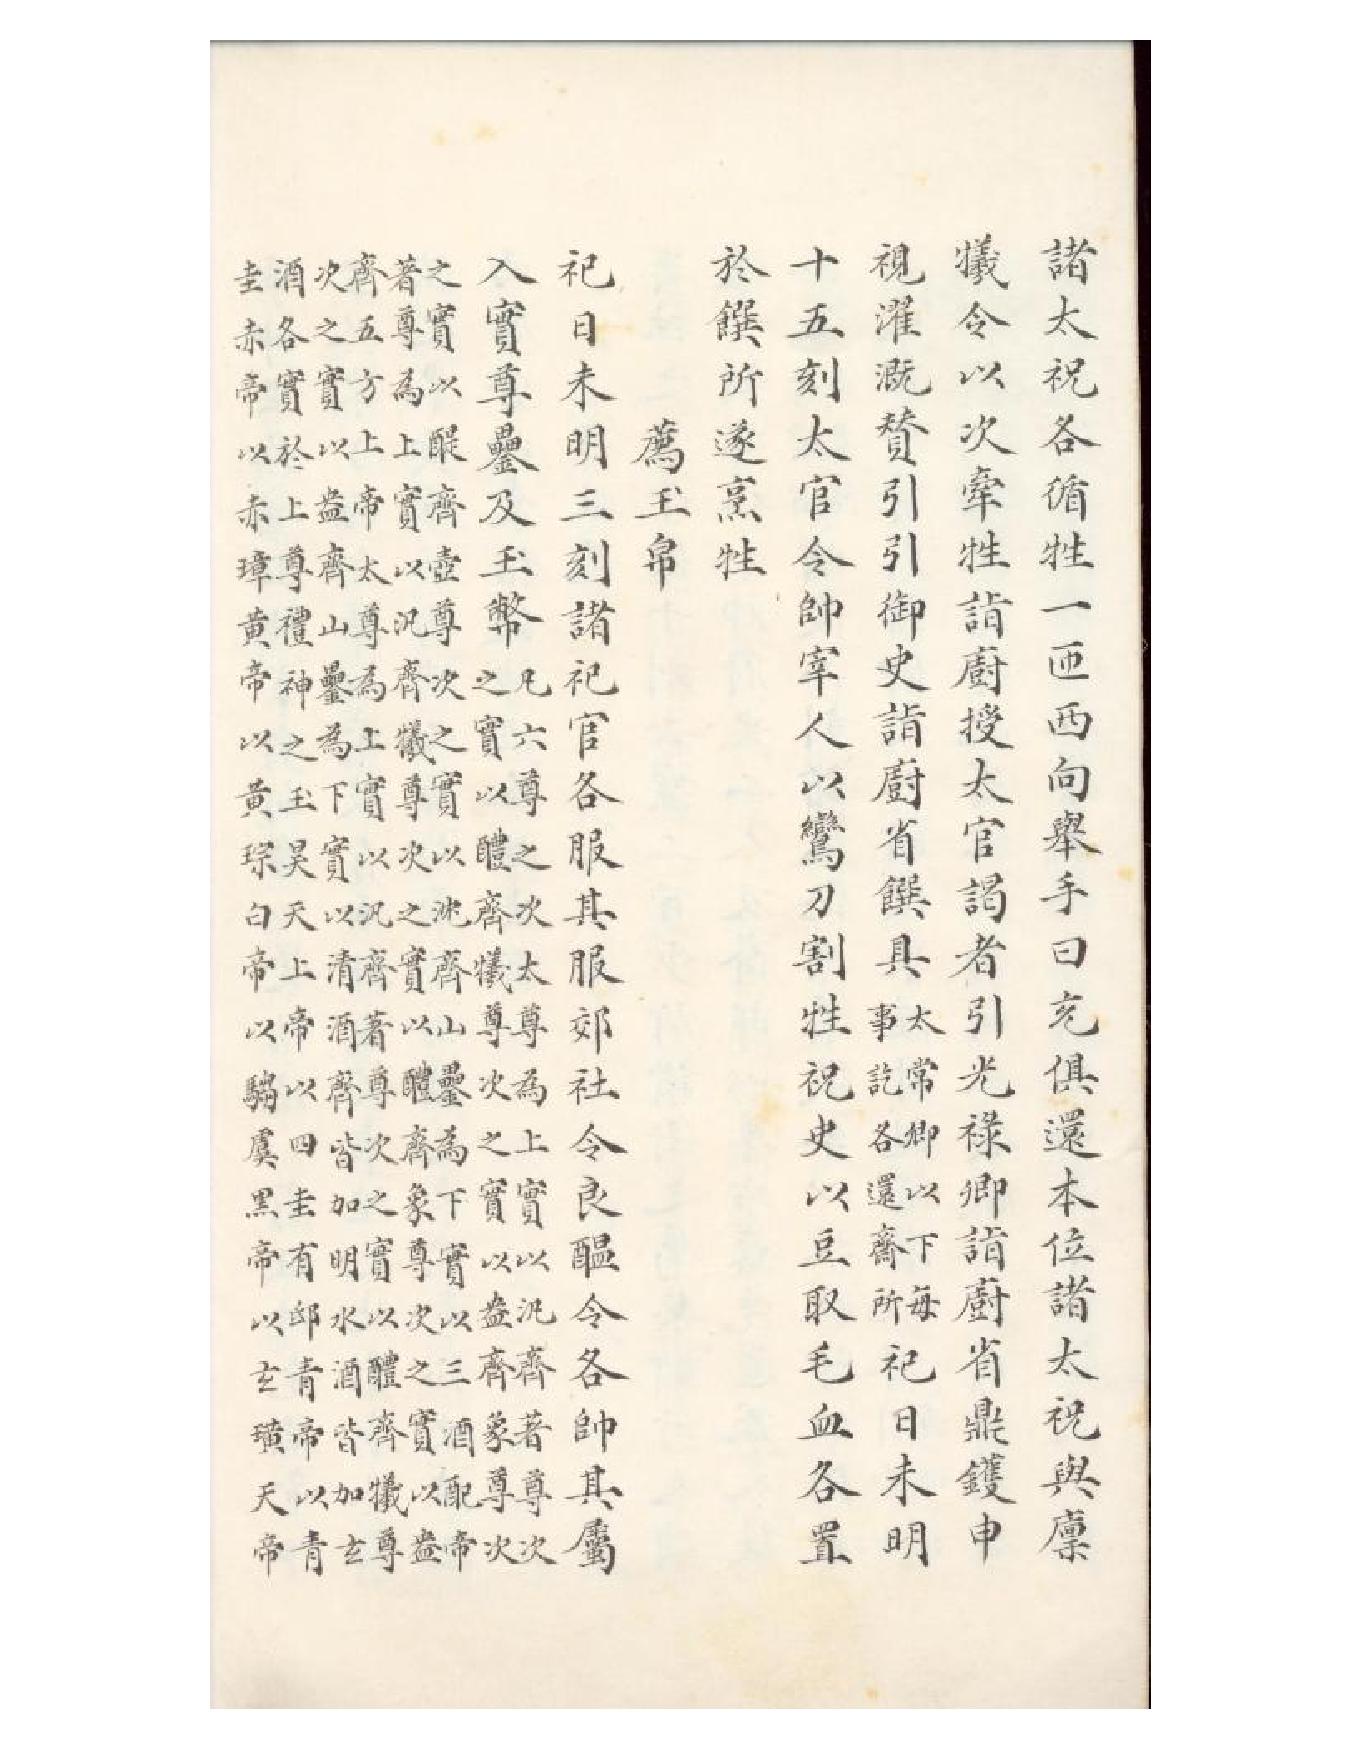 諸太祝各循牲一匝西向舉手曰充俱還本位諸太祝與廩
犧令以次牽牲詣廚授太官謁者引光祿卿詣廚省鼎鑊申
視濯溉贊引引御史詣廚省饌具太常卿以下每事訖各還齋所祀日未明
十五刻太官令帥宰人以鸞刀割牲祝史以豆取毛血各置
於饌所遂烹牲
薦玉帛
祀日未明三刻諸祀官各服其服郊社令良醞令各帥其屬
入實尊罍及玉幣凡六尊之次太尊為上實以汎齊著尊次
之實以醴齊犧尊次之實以盎齊象尊次
之實以醍齊壺尊次之實以沈齊山罍為下實以三酒配帝
著尊為上實以汎齊犧尊次之實以醴齊象尊次之實以盎
齊五方上帝太尊為上實以汎齊著尊次之實以醴齊犧尊
次之實以盎齊山罍為下實以清酒齊皆加明水酒皆加玄
酒各實於上尊禮神之玉昊天上帝以四圭有邸青帝以青
圭赤帝以赤璋黃帝以黃琮白帝以騶虞黑帝以玄璜天帝